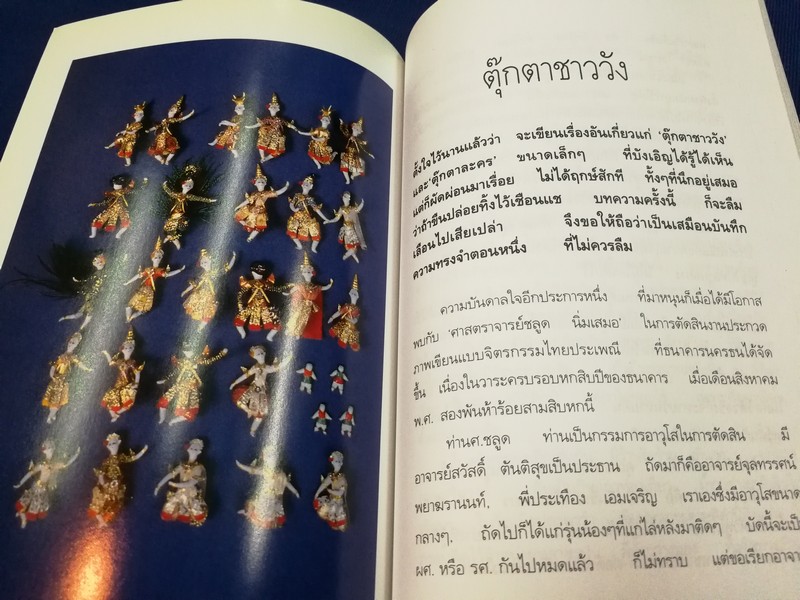 ตุ๊กตาชาววัง
ตั้งใจไว้นานแล้วว่า จะเขียนเรื่องอันเกี่ยวแก่ 'ตุ๊กตาชาววัง'
และ'ตุ๊กตาละคร' ขนาดเล็กๆ ที่บังเอิญได้รู้ได้เห็น
แต่ก็ผัดผ่อนมาเรื่อย ไม่ได้ฤกษ์สักที ทั้งๆที่นึกอยู่เสมอ
ว่าถ้าขืนปล่อยทิ้งไว้เชือนแช บทความครั้งนี้ ก็จะลืม
เลือนไปเสียเปล่า จึงขอให้ถือว่าเป็นเสมือนบันทึก
ความทรงจำตอนหนึ่ง ที่ไม่ควรลืม
ความบันดาลใจอีกประการหนึ่ง ที่มาหนุนก็เมื่อได้มีโอกาส
พบกับ 'ศาสตราจารย์ชลูด นิ่มเสมอ' ในการตัดสินงานประกวด
ภาพเขียนแบบจิตรกรรมไทยประเพณี ที่ธนาคารนครธนได้จัด
ขึ้น เนื่องในวาระครบรอบหกสิบปีของธนาคาร เมื่อเดือนสิงหาคม
พ.ศ. สองพันห้าร้อยสามสิบหกนี้
ท่านศ.ชลูด ท่านเป็นกรรมการอาวุโสในการตัดสิน มี
อาจารย์สวัสดิ์ ตันติสุขเป็นประธาน ถัดมาก็คืออาจารย์จุลทรรศน์
พยาฆรานนท์, พี่ประเทือง เอมเจริญ เราเองซึ่งมีอาวุโสขนาด
กลางๆ, ถัดไปก็ได้แก่รุ่นน้องๆที่แก่ไล่หลังมาติดๆ บัดนี้จะเป็
ผศ. หรือ รศ. กันไปหมดแล้ว ก็ไม่ทราบ แต่ขอเรียกอาจา